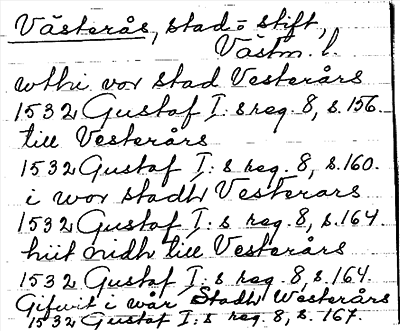 Västerås, stad o. stift,
Västm. l.
wthi vor stad Vesterårs
1532 Gustaf I:s reg. 8, s. 156.
till Vesterårs
1532 Gustaf I:s reg. 8, s. 160.
i wor stadh Vesterårs
1532 Gustaf I:s reg. 8, s. 164.
hiit nidh till Vesterårs
1532 Gustaf I:s reg. 8, s. 164.
Gifwit i wår Stadh Westerårs
1532 Gustaf I:s reg. 8, s. 167.